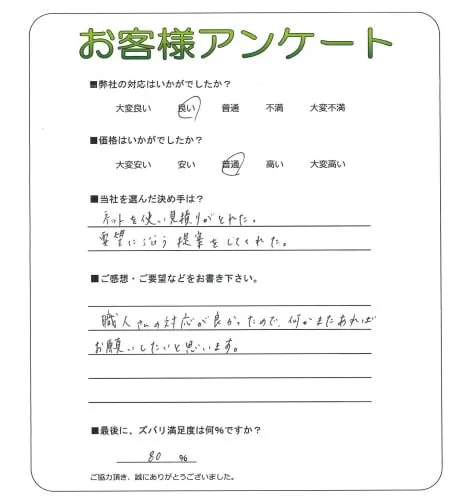 お客様アンケート
■弊社の対応はいかがでしたか？
大変良い 良い 普通 不満 大変不満
■価格はいかがでしたか？
大変安い 安い 普通 高い 大変高い
■当社を選んだ決め手は？
ネットを使い見積りがとれた。
要望に沿う提案をしてくれた。
■ご感想・ご要望などをお書き下さい。
職人さんの対応が良かったので、何かまたあれば
お願いしたいと思います。
■最後に、ズバリ満足度は何％ですか？
80 ％
ご協力頂き、誠にありがとうございました。